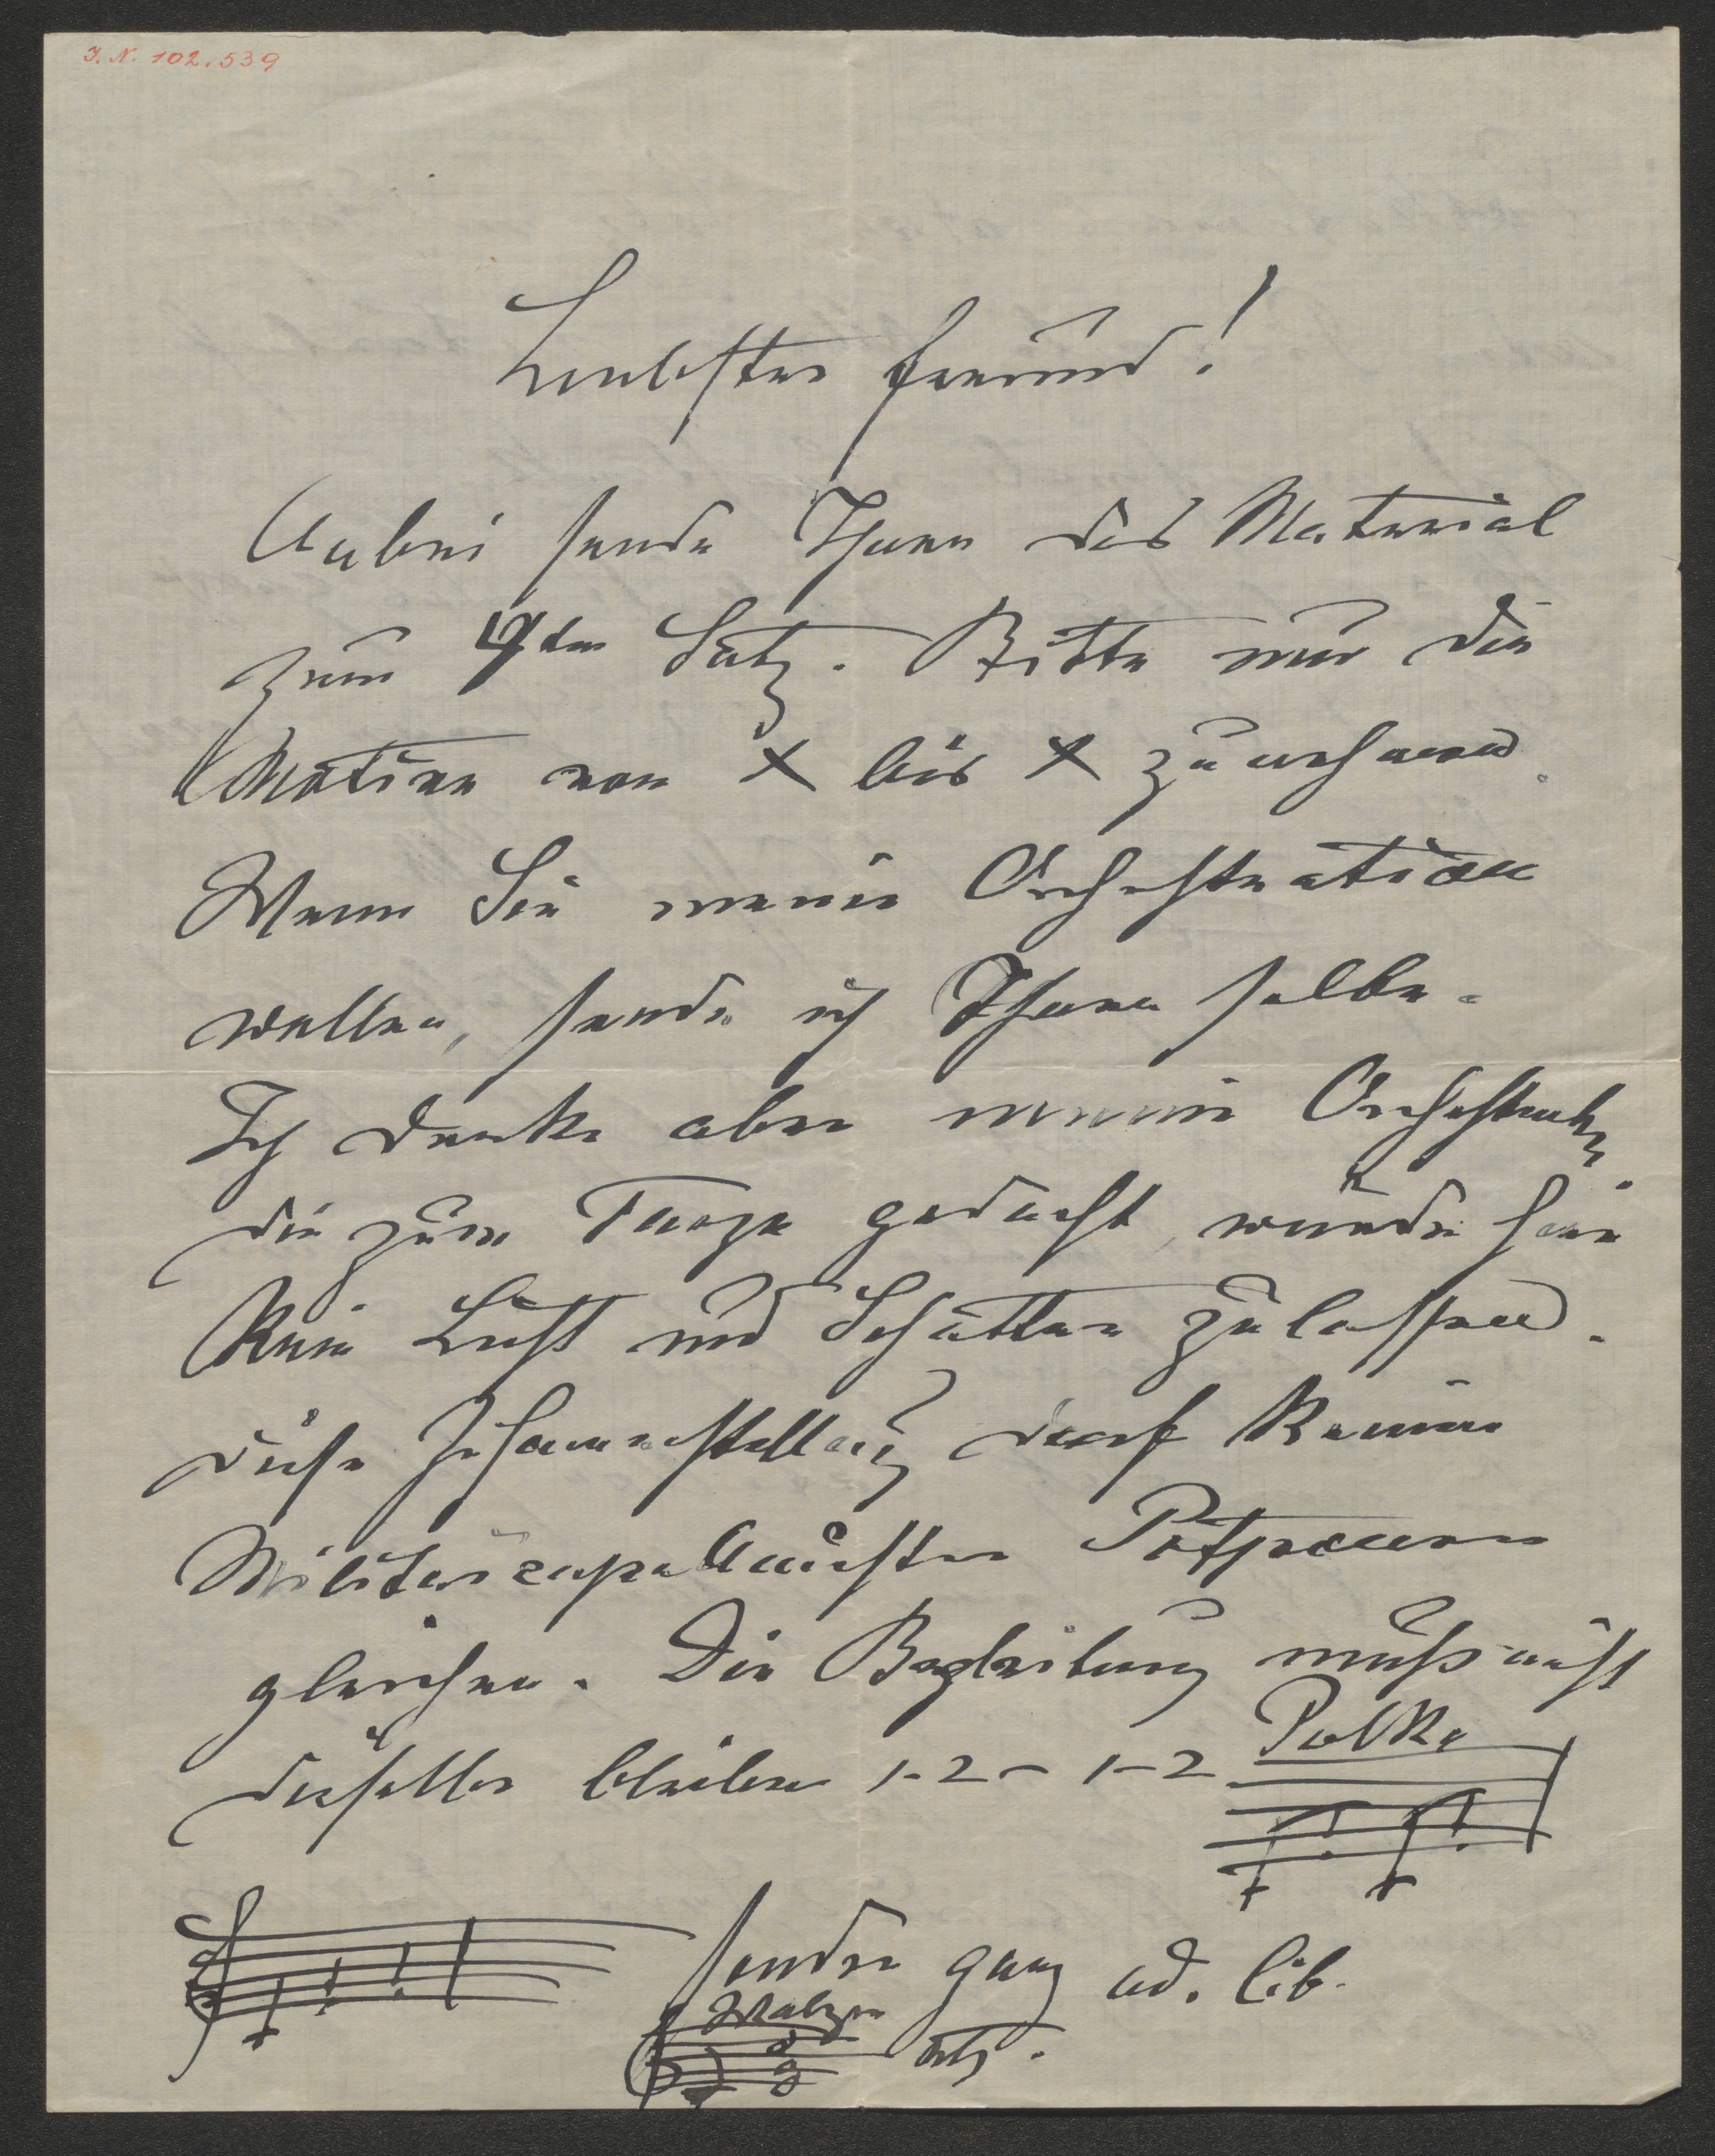 I. N. 102.539
Liebster Freund!
Anbei sende Ihnen das Material
zum 4ten Satz. Bitte nur die
Motive von X bis X zu nehmen.
Wenn Sie meine Orchestration
wollen, sende ich Ihnen selbe.
Ich denke aber meine Orchestratg
die zum Tanze gedacht, würde hier
kein Licht und Schatten zulassen.
Diese Zusammenstellung darf keinem
Militärcapellmeister Potpourri
gleichen. Die Begleitung muß nicht
dieselbe bleiben 1-2- 1-2
Polka
sondern ganz ad. lib.
Walzer
etz.